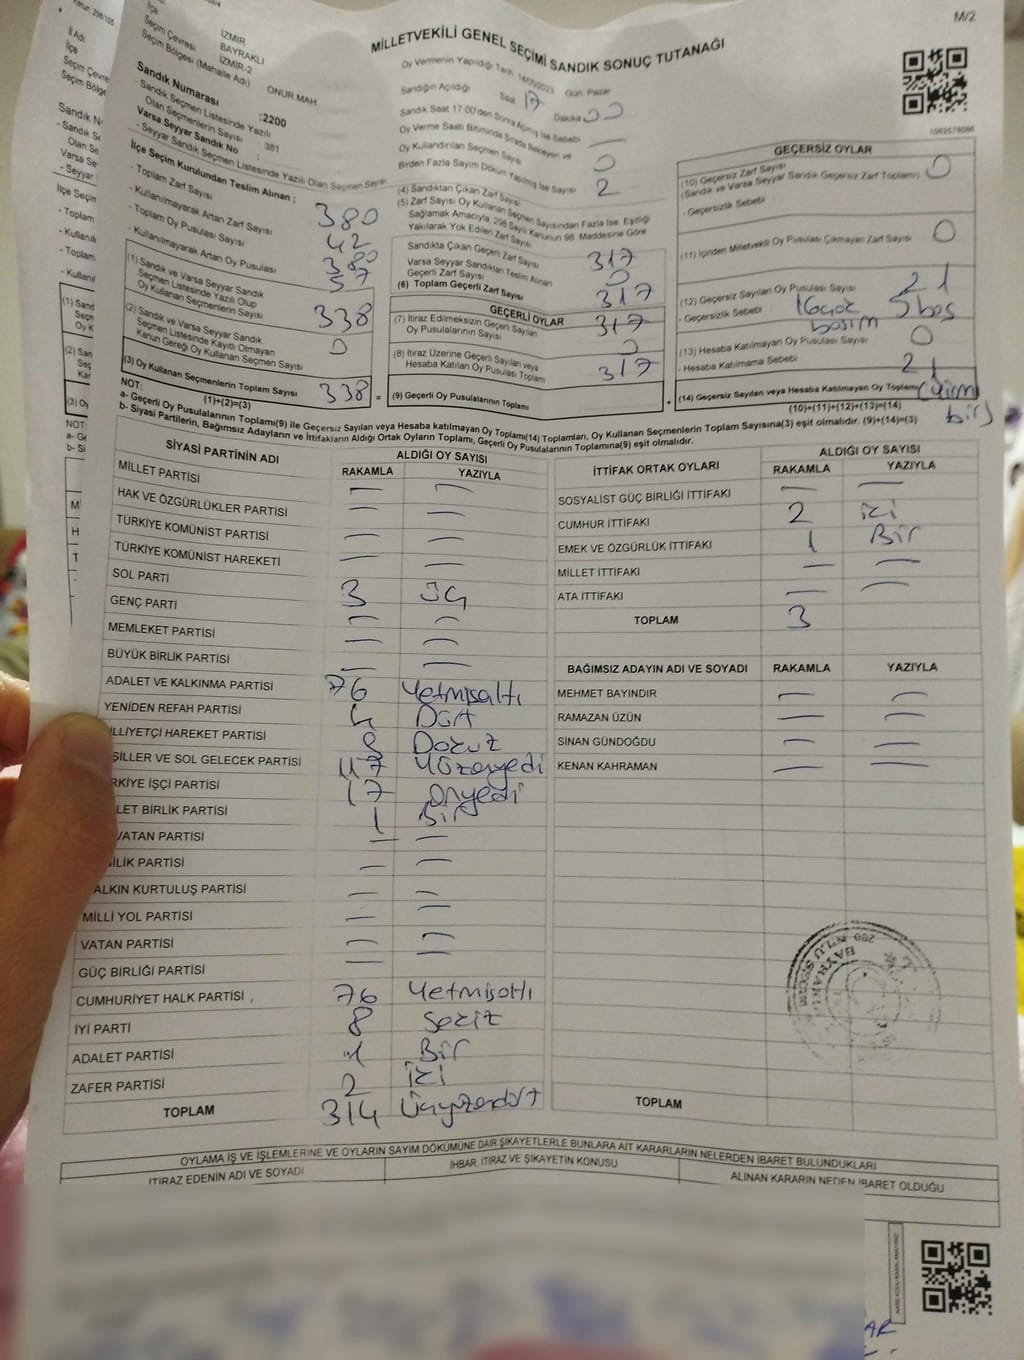 M/2
MİLLETVEKİLİ GENEL SEÇİMİ SANDIK SONUÇ TUTANAĞI
İl Adı
İlçe
Seçim Çevresi
İZMİR
İlçe
BAYRAKLI
Seçim Çevresi
İZMİR-2
Seçim Bölgesi (Mahalle Adı)
ONUR MAH.
Sandık Numarası
:2200
- Sandık Seçmen Listesinde Yazılı
Olan Seçmenlerin Sayısı : 381
Varsa Seyyar Sandık No :
- Seyyar Sandık Seçmen Listesinde Yazılı Olan Seçmen Sayısı
İlçe Seçim Kurulundan Teslim Alınan ;
- Toplam Zarf Sayısı 380
- Kullanılmayarak Artan Zarf Sayısı 42
- Toplam Oy Pusulası Sayısı 380
- Kullanılmayarak Artan Oy Pusulası 57
(1) Sandık ve Varsa Seyyar Sandık
Seçmen Listesinde Yazılı Olup
Oy Kullanan Seçmenlerin Sayısı 338
(2) Sandık ve Varsa Seyyar Sandık
Seçmen Listesinde Kayıtlı Olmayan
Kanun Gereği Oy Kullanan Seçmen Sayısı 0
(3) Oy Kullanan Seçmenlerin Toplam Sayısı
(1)+(2)=(3) 338 =
Oy Vermenin Yapıldığı Tarih 14/05/2023 Gün: Pazar
Sandığın Açıldığı Saat 17 Dakika 00
Sandık Saat 17.00'den Sonra Açılmış İse Sebebi
Oy Verme Saati Bitiminde Sırada Bekleyen ve
Oy Kullandırılan Seçmen Sayısı 0
Birden Fazla Sayım Döküm Yapılmış İse Sayısı 2
(4) Sandıktan Çıkan Zarf Sayısı
(5) Zarf Sayısı Oy Kullanan Seçmen Sayısından Fazla İse, Eşitliği
Sağlamak Amacıyla, 298 Sayılı Kanunun 98. Maddesine Göre
Yakılarak Yok Edilen Zarf Sayısı
Sandıkta Çıkan Geçerli Zarf Sayısı 317
Varsa Seyyar Sandıktan Teslim Alınan
Geçerli Zarf Sayısı 0
(6) Toplam Geçerli Zarf Sayısı 317
GEÇERLİ OYLAR
(7) İtiraz Edilmeksizin Geçerli Sayılan
Oy Pusulasının Sayısı 317
(8) İtiraz Üzerine Geçerli Sayılan veya
Hesaba Katılan Oy Pusulası Toplamı 0
(9) Geçerli Oy Pusulalarının Toplamı 317 +
GEÇERSİZ OYLAR
(10) Geçersiz Zarf Sayısı
(Sandık ve Varsa Seyyar Sandık Geçersiz Zarf Toplamı) 0
- Geçersizlik Sebebi
(11) İçinden Milletvekili Oy Pusulası Çıkmayan Zarf Sayısı 0
(12) Geçersiz Sayılan Oy Pusulası Sayısı 21
- Geçersizlik Sebebi 5 boş
(13) Hesaba Katılmayan Oy Pusulası Sayısı 0
- Hesaba Katılmama Sebebi
(14) Geçersiz Sayılan veya Hesaba Katılmayan Oy Toplamı 21 (Yirmi
(10)+(11)+(12)+(13)=(14) bir)
NOT:
a- Geçerli Oy Pusulalarının Toplamı(9) ile Geçersiz Sayılan veya Hesaba katılmayan Oy Toplamı(14) Toplamları, Oy Kullanan Seçmenlerin Toplam Sayısına(3) eşit olmalıdır. (9)+(14)=(3)
b- Siyasi Partilerin, Bağımsız Adayların ve İttifakların Aldığı Ortak Oyların Toplamı, Geçerli Oy Pusulalarının Toplamına(9) eşit olmalıdır.
SİYASİ PARTİNİN ADI ALDIĞI OY SAYISI
RAKAMLA YAZIYLA
MİLLET PARTİSİ — —
HAK VE ÖZGÜRLÜKLER PARTİSİ — —
TÜRKİYE KOMÜNİST PARTİSİ — —
TÜRKİYE KOMÜNİST HAREKETİ — —
SOL PARTİ 3 üç
GENÇ PARTİ — —
MEMLEKET PARTİSİ — —
BÜYÜK BİRLİK PARTİSİ — —
ADALET VE KALKINMA PARTİSİ 76 Yetmişaltı
YENİDEN REFAH PARTİSİ 4 Dört
İLLİYETÇİ HAREKET PARTİSİ Dokuz
ŞİLLER VE SOL GELECEK PARTİSİ 117 Yüzonyedi
RKİYE İŞÇİ PARTİSİ 17 onyedi
LET BİRLİK PARTİSİ 1 Bir
VATAN PARTİSİ — —
İLİK PARTİSİ — —
ALKIN KURTULUŞ PARTİSİ — —
MİLLİ YOL PARTİSİ — —
VATAN PARTİSİ — —
GÜÇ BİRLİĞİ PARTİSİ —
CUMHURİYET HALK PARTİSİ 76 Yetmişaltı
İYİ PARTİ 8 Sekiz
ADALET PARTİSİ 1 Bir
ZAFER PARTİSİ 2 iki
TOPLAM 314 Üçyüzondört
İTTİFAK ORTAK OYLARI ALDIĞI OY SAYISI
RAKAMLA YAZIYLA
SOSYALİST GÜÇ BİRLİĞİ İTTİFAKI — —
CUMHUR İTTİFAKI 2 iki
EMEK VE ÖZGÜRLÜK İTTİFAKI 1 Bir
MİLLET İTTİFAKI — —
ATA İTTİFAKI — —
TOPLAM 3
BAĞIMSIZ ADAYIN ADI VE SOYADI RAKAMLA YAZIYLA
MEHMET BAYINDIR — —
RAMAZAN ÜZÜN — —
SİNAN GÜNDOĞDU — —
KENAN KAHRAMAN — —
TOPLAM
OYLAMA İŞ VE İŞLEMLERİNE VE OYLARIN SAYIM DÖKÜMÜNE DAİR ŞİKAYETLERLE BUNLARA AİT KARARLARIN NELERDEN İBARET BULUNDUKLARI
İTİRAZ EDENİN ADI VE SOYADI İHBAR, İTİRAZ VE ŞİKAYETİN KONUSU ALINAN KARARIN NEDEN İBARET OLDUĞU